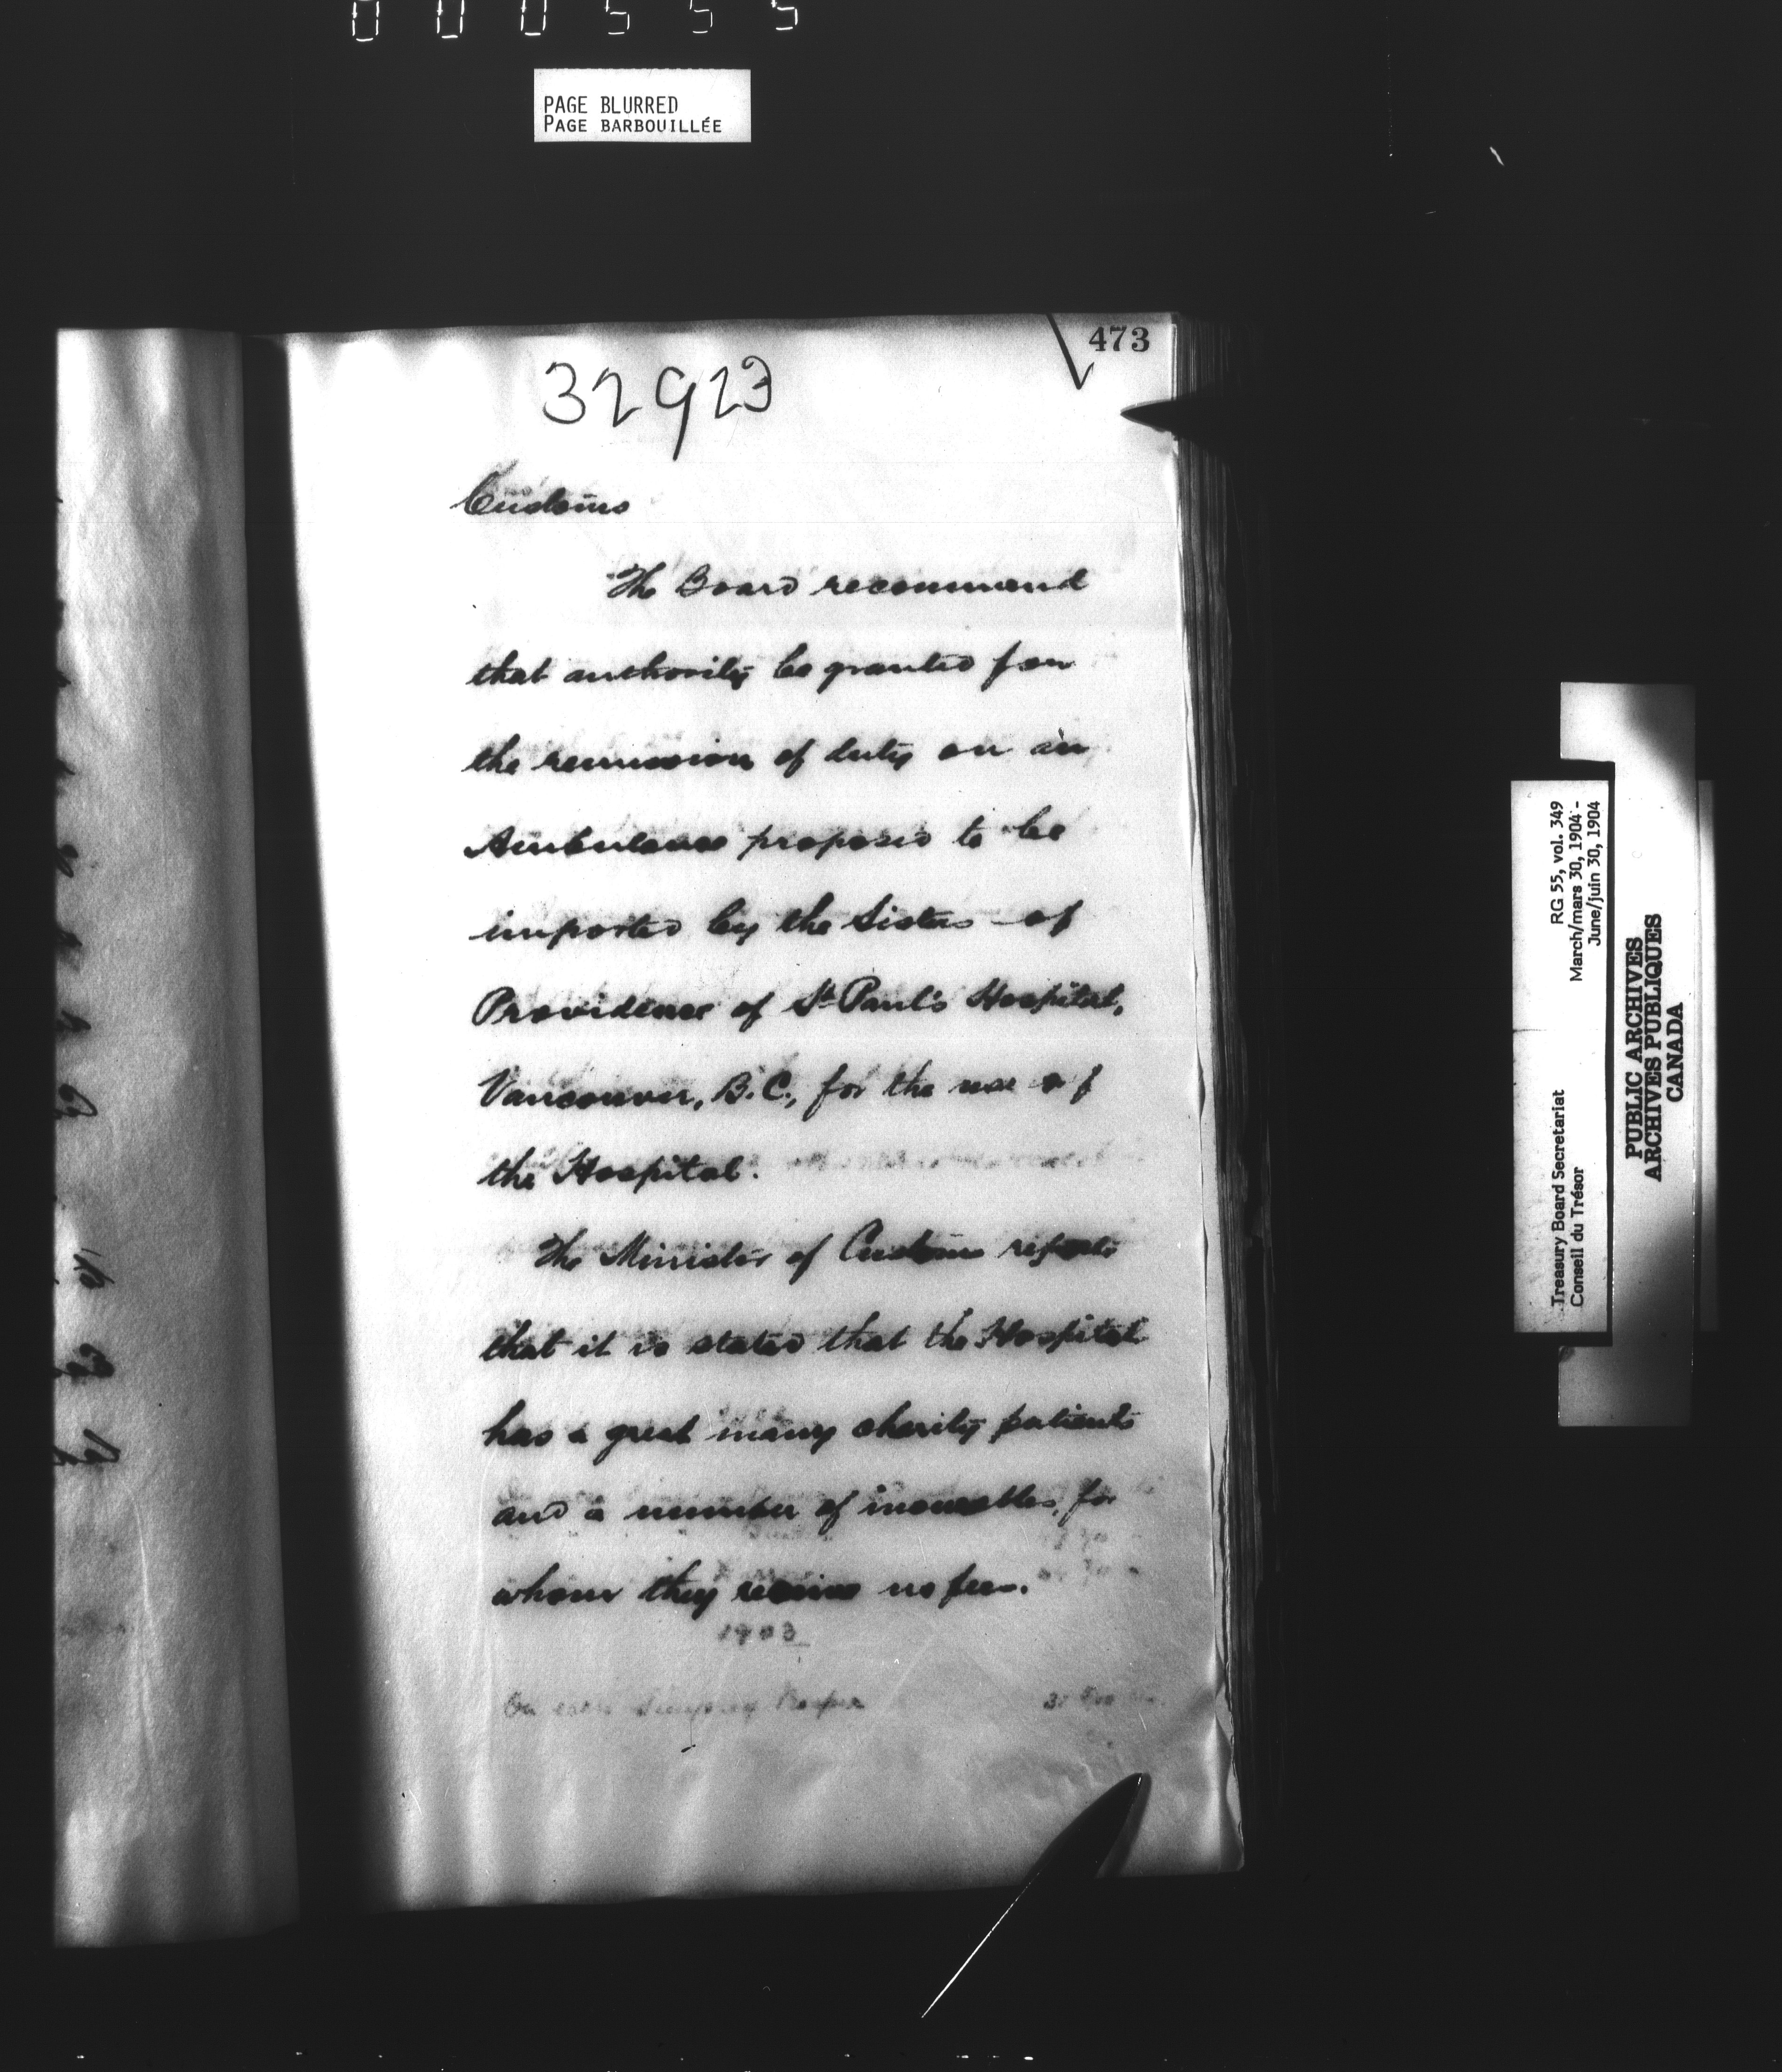 000555
PAGE BLURRED
PAGE BARBOUILLÉE
473
32923
Customs
The Board recommend
that authority be granted for
the remission of duty on an
Ambulance proposed to be
imported by the Sisters of
Providence of St. Paul's Hospital,
Vancouver, B.C., for the use of
the Hospital.
The Minister of Customs reports
that it is stated that the Hospital
has a great many charity patients
and a number of incurables, for
whom they receive no fees.
1903
Treasury Board Secretariat RG 55, vol. 349
Conseil du Trésor March/mars 30, 1904 -
June/juin 30, 1904
PUBLIC ARCHIVES
ARCHIVES PUBLIQUES
CANADA